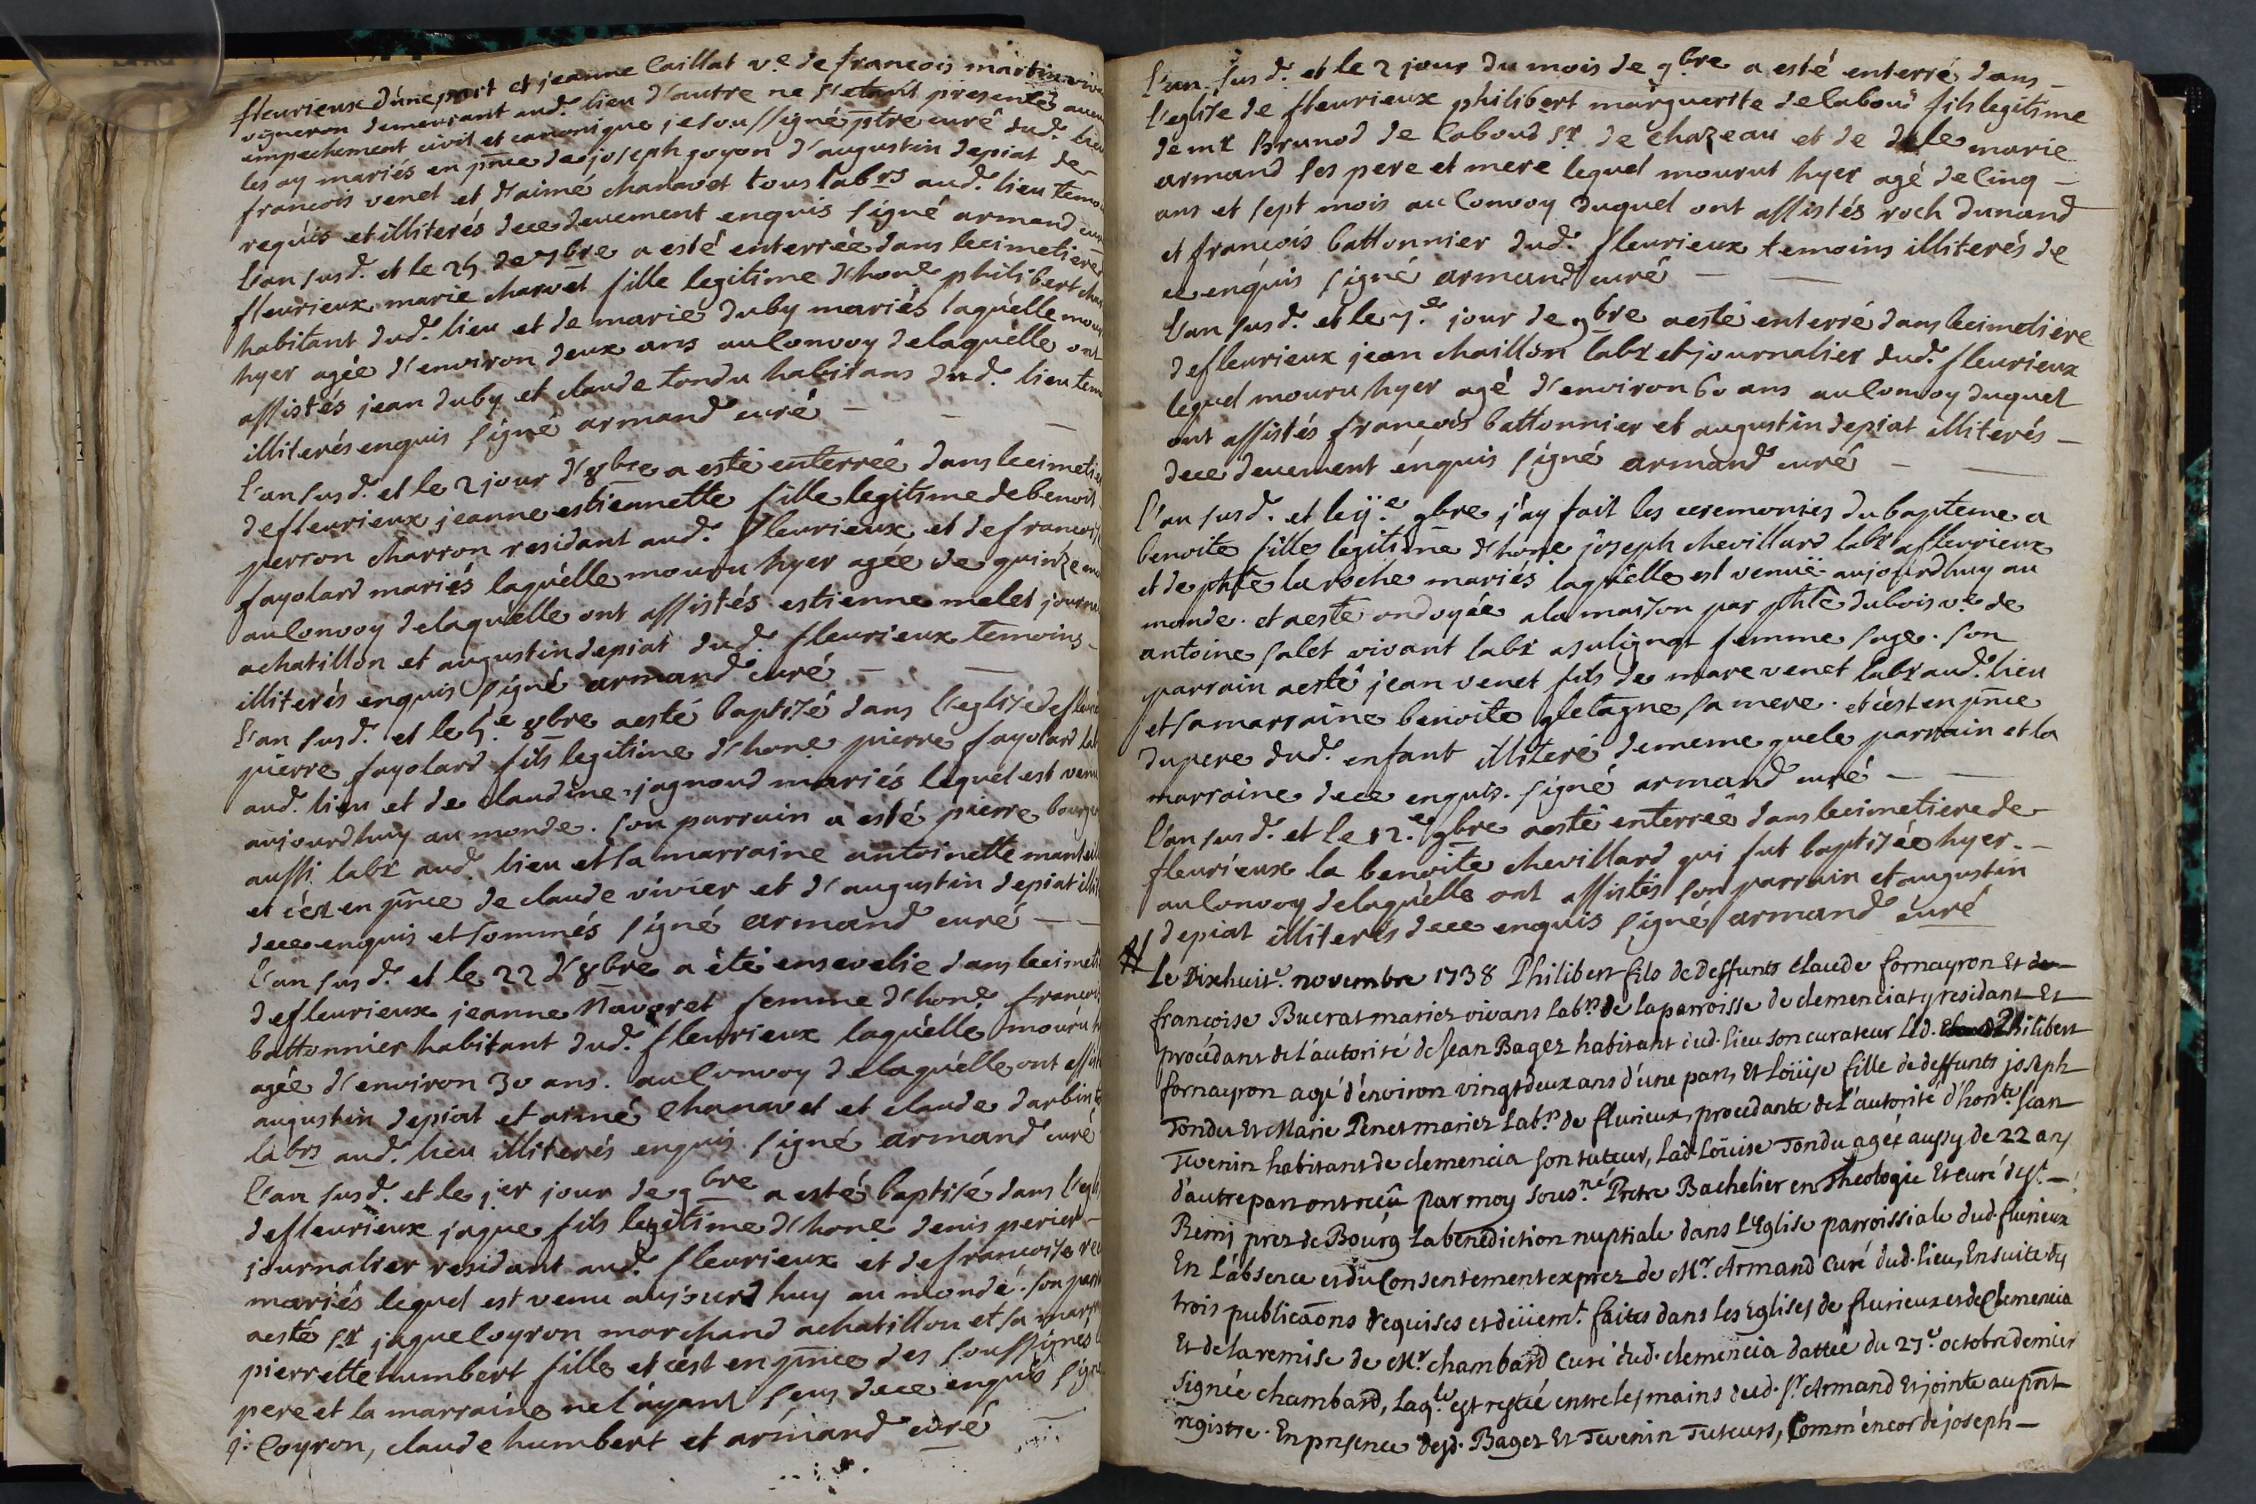 fleurieux d'une part et jeanne Caillat ve. de francois martin viva
vigneron demeurant aud. lieu d'autre ne s'etant presentés aucun
empechement civil et canonique je soussigné ptre curé dud. lieu
les ay mariés en pnce de joseph goyon d'augustin depiat de
francois venet et d'aimé chanavet tous labrs aud. lieu temo
requis et illiterés dece deuement enquis signé armand cur
L'an susd. et le 25 de 7bre a esté enterrée dans le cimetiere
fleurieux marie charvet fille legitime d'hone philibert char
habitant dud. lieu et de marie duby mariés laquelle mour
hyer agée d'environ deux ans au Convoy de laquelle ont
assistés jean duby et claude tondu habitans dud. lieu tem
illiterés enquis signé armand curé
L'an susd. et le 2 jour d'8bre a esté enterrée dans le cimetie
de fleurieux jeanne estiennette fille legitime de benoit
perron charron residant aud. fleurieux et de francois
fayolard mariés laquelle mouru hyer agée de quinze
au Convoy de laquelle ont assistés estienne melet journa
a chatillon et augustin depiat dud. fleurieux temoins
illiterés enquis signé armand curé
L'an susd. et le 5.e 8bre a esté baptisé dans l'eglise de fleuri
pierre fayolard fils legitime d'hone pierre fayolard lab
aud. lieu et de claudine jagnoud mariés lequel est venu
aujourdhuy au monde. son parrain a esté pierre bourg
aussi labr aud. lieu et sa marraine antoinette mant
et c'est en pnce de claude vivier et d'augustin depiat illi
dece enquis et sommés signé armand curé
L'an susd. et le 22 d'8bre a été ensevelie dans le cimeti
de fleurieux jeanne Navoret femme d'hone. francois
battonnier habitant dud. fleurieux laquelle mouru
agée d'environ 30 ans. au Convoy de laquelle ont assist
augustin depiat et aimé Chanavet et claude darbint
labrs aud. lieu illiterés enquis signé armand curé
L'an susd. et le jer jour de 9bre a esté baptisé dans l'egl
de fleurieux jaque fils legitime d'hone denis perier
journalier residant aud. fleurieux et de francoise
mariés lequel est venu aujourdhuy au monde. son par
a esté sr jaque Coyron marchand a chatillon et sa marr
pierrette humbert fille et c'est en pnce des soussignes
pere et la marraine ne l'ayant sceu dece enquis signé
j. Coyron, claude humbert et armand curé
L'an susd. et le 2 jour du mois de 9bre a esté enterré dans
l'eglise de fleurieux philibert marguerite de laboud fils legitime
de mr Brunod de Laboud sr de chazeau et de dele marie
armand ses pere et mere lequel mourut hyer agé de Cinq
ans et sept mois au Convoy duquel ont assistés roch dunand
et francois battonnier dud. fleurieux temoins illiterés de
ce enquis signé armand curé
L'an susd. et le 7.e jour de 9bre a esté enterré dans le cimetiere
de fleurieux jean chaillon labr et journalier dud. fleurieux
lequel mouru hyer agé d'environ 60 ans au Convoy duquel
ont assistés francois battonnier et augustin depiat illiterés
dece deuement enquis signé armand curé
L'an susd. et le ij.e 9bre j'ay fait les ceremonies du bapteme a
benoite fille legitime d'hone joseph chevillard labr a fleurieux
et de phte laroche mariés laquelle est venue aujourdhuy au
monde. et a esté ondoyée a la maison par phte dubois ve de
antoine salet vivant labr a sulignat femme sage. son
parrain a esté jean venet fils de marc venet labr aud. lieu
et sa marraine benoite gletagne sa mere. et c'est en pnce
du pere dud. enfant illiteré de meme que le parrain et la
marraine dece enquis. signé armand curé
L'an susd. et le 12.e 9bre a esté enterrée dans le cimetiere de
fleurieux la benoite chevillard qui fut baptisée hyer.
au Convoy de laquelle ont assistés son parrain et augustin
depiat illiterés dece enquis signé armand curé
Le Dixhuite. novembre 1738 Philibert fils de Deffunts Claude fornayron Et de
francoise Bucrat mariez vivans labrs de la parroisse de clemenciat y residant Et
procedant de l'autorité de Jean Bagez habitant dud. lieu son curateur Led. Philibert
fornayron agé d'environ vingt deux ans d'une part, Et Loüise fille de deffunts joseph
Tondu Et Marie Penet mariez Labrs de flurieux, procedante de l'autorité d'honte Jean
Tevenin habitant de clemencia son tuteur, Lad. Loüise Tondu agée aussy de 22 ans
d'autre part ont receu par moy sousné Pretre Bachelier en Theologie Et curé de St.
Remj prez de Bourg la benediction nuptiale dans l'Eglise parroissiale dud. flurieux
En l'absence et du Consentement exprez de Mr. Armand Curé dud. lieu, Ensuite des
trois publicaons requises et deüemt. faites dans les Eglises de flurieux et de Clemencia
Et de la remise de Mr. chambard Curé dud. clemencia dattée du 27e octobre dernier
signée chambard, Laqle. est restée entre les mains dud. Sr. Armand Et jointe au pnt
registre. En presence desd. Bagez Et Tevenin Tuteurs, Comm'encor de joseph